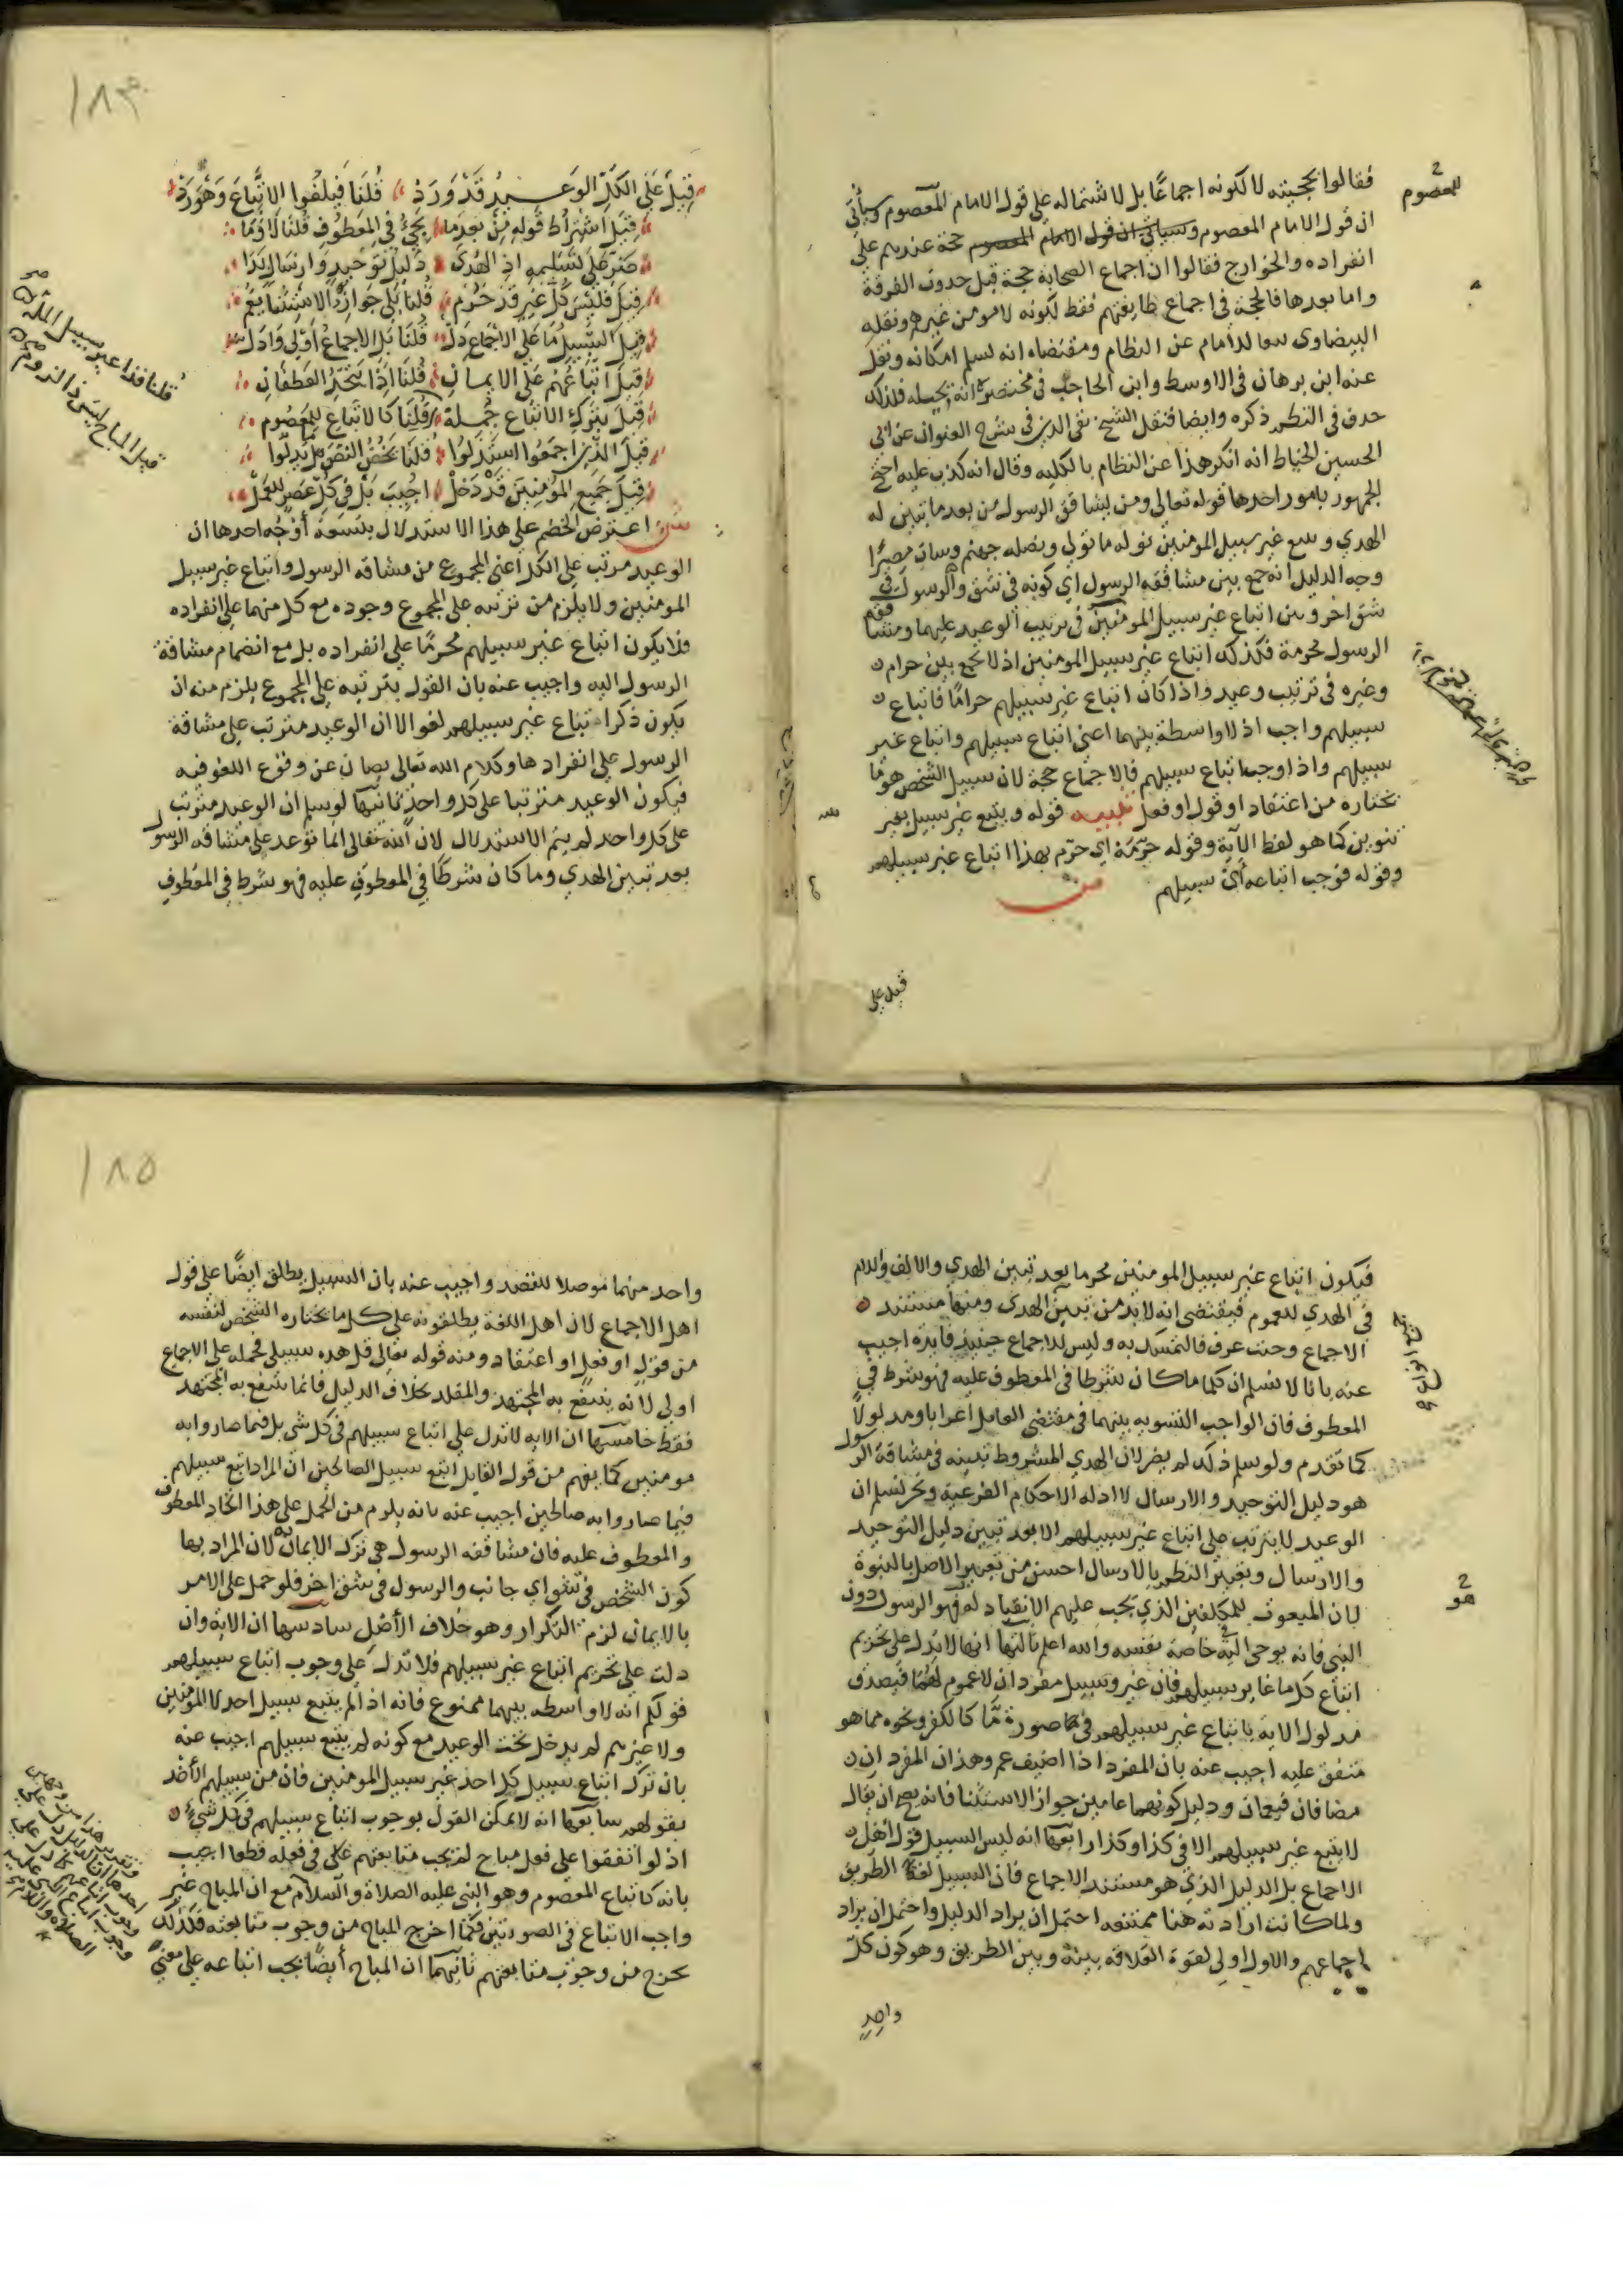 فقالوا بحجيته لا لكونه اجماعًا بل لاشتماله على قول الامام المعصوم وسيأتي
ان قول الامام المعصوم وسياتي ان قول الامام المعصوم حجة عندهم على
انفراده والخوارج فقالوا ان اجماع الصحابة حجة قبل حدوث الفرقة
واما بعدها فالحجة في اجماع طايفتهم فقط لكونه لا مومن غيرهم ونقله
البيضاوي تبعا للامام عن النظام ومقتضاه انه يسلم امكانه ونقل
عنه ابن برهان في الاوسط وابن الحاجب في مختصره انه يحيله فلذلك
حذف في النظم ذكره وايضا فنقل الشيخ تقي الدين في شرح العنوان عن ابي
الحسين الخياط انه انكر هذا عن النظام بالكلية وقال انه كذب عليه احتج
الجمهور بامور احدها قوله تعالى ومن يشاقق الرسول من بعد ما تبين له
الهدي ويتبع غير سبيل المومنين نوله ما تولي ونصله جهنم وسات مصيرًا
وجه الدليل انه جمع بين مشاققه الرسول اي كونه في شق والرسول في
شق اخر وبين اتباع غير سبيل المومنين في ترتيب الوعيد عليهما ومشاققة
الرسول محرمة فكذلك اتباع غير سبيل المومنين اذ لا يجمع بين حرام
وغيره في ترتيب وعيد واذا كان اتباع غير سبيلهم حرامًا فاتباع
سبيلهم واجب اذ لا واسطة بينهما اعني اتباع سبيلهم واتباع غير
سبيلهم واذا وجب اتباع سبيلهم فالاجماع حجة لان سبيل الشخص هو ما
يختاره من اعتقاد او قول او فعل تنبيه قوله ويتبع غير سبيل بغير
تنوين كما هو لفظ الآية وقوله حرّمه اي حرّم بهذا اتباع غير سبيلهم
وقوله فوجب اتباعه أي سبيلهم
ص
قيل على
للمعصوم
١٨٣
قيل على الكل الوعيد قد ورد قلنا فيلغوا الاتباع وهو رد
قيل اشتراط قوله من بعد ما يجيء في المعطوف قلنا لا وما
ضرّ على تسليمه اذ الهدى دليل توحيد وارسال بدا
قيل فليس كل غير قد حرم قلنا بلى جواز الاستثنا يعم
قيل السبيل ما على الاجماع دل قلنا بل الاجماع أولى وادل
قيل اتباعهم على الايمان قلنا اذا يتحد العطفان
قيل بترك الاتباع جملة قلنا كالاتباع للمعصوم
قيل الذي اجمعوا استدلوا قلنا يخص النص
قيل جميع المؤمنين قد دخل اجيب بل في كل عصر للعمل
قلنا فذا غير سبيل الملة
قيل المباح ليس ذا لزوم
ش اعترض الخصم على هذا الاستدلال بتسعة أوجه احدها ان
الوعيد مرتب على الكل اعني المجموع من مشاقه الرسول واتباع غير سبيل
المومنين ولا يلزم من ترتبه على المجموع وجوده مع كل منهما على انفراده
فلا يكون اتباع غير سبيلهم محرمًا على انفراده بل مع انضمام مشاقة
الرسول اليه واجيب عنه بان القول بترتبه على المجموع يلزم منه ان
يكون ذكر اتباع غير سبيلهم لغوا لان الوعيد مترتب على مشاقة
الرسول على انفرادها وكلام الله تعالى يصان عن وقوع اللغو فيه
فيكون الوعيد مترتبا على كل واحد ثانيها لو سلم ان الوعيد مترتب
على كل واحد لم يتم الاستدلال لان الله تعالى انما توعد على مشاقه الرسول
بعد تبين الهدي وما كان شرطًا في المعطوف عليه فهو شرط في المعطوف
فيكون اتباع غير سبيل المومنين محرما بعد تبين الهدي والالف واللام
في الهدي للعموم فيقتضي انه لا بد من تبين الهدى ومنها مستند
الاجماع وحيث عرف فالتمسك به وليس للاجماع حينيذ فايدة اجيب
عنه بانا لا نسلم ان كلما كان شرطا في المعطوف عليه فهو شرط في
المعطوف فان الواجب التسويه بينهما في مقتضى العامل اعرابا ومدلولًا
كما تقدم ولو سلم ذلك لم يضر لان الهدي المشروط تبينه في مشاقة الرسول
هو دليل التوحيد والارسال لا ادله الاحكام الفرعية ونحن نسلم ان
الوعيد لا يترتب على اتباع غير سبيلهم الا بعد تبين دليل التوحيد
والارسال وتعبير النظم بالارسال احسن من تعبير الاصل بالنبوة
لان المبعوث للمكلفين الذي يجب عليهم الانقياد له هو الرسول دون
النبي فانه يوحى اليه خاصة نفسه والله اعلم ثالثها انها لا تدل على تحريم
اتباع كل ما غاير سبيلهم فان غير وسبيل مفردان لا عموم لهما فيصدق
مدلول الاية باتباع غير سبيلهم في صورة ما كالكفر ونحوه مما هو
متفق عليه اجيب عنه بان المفرد اذا اضيف عم وهذان المفردان
مضافان فيعمان ودليل كونهما عامين جواز الاستثنا فانه يصح ان يقال
لا يتبع غير سبيلهم الا في كذا وكذا رابعها انه ليس السبيل قول اهل
الاجماع بل الدليل الذي هو مستند الاجماع فان السبيل لغة الطريق
ولما كانت ارادته هنا ممتنعه احتمل ان يراد الدليل واحتمل ان يراد
اجماعهم والاول اولى لقوة العلاقه بينه وبين الطريق وهو كون كل
واحد
هو
١٨٥
واحد منهما موصلا للقصد واجيب عنه بان السبيل يطلق ايضًا على قول
اهل الاجماع لان اهل اللغة يطلقونه على كل ما يختاره الشخص لنفسه
من قول او فعل او اعتقاد ومنه قوله تعالى قل هذه سبيلي فحمله على الاجماع
اولى لانه ينتفع به المجتهد والمقلد بخلاف الدليل فانما ينتفع به المجتهد
فقط خامسها ان الايه لا تدل على اتباع سبيلهم في كل شي بل فيما صاروا به
مومنين كما يفهم من قول القايل اتبع سبيل الصالحين ان المراد اتبع سبيلهم
فيما صاروا به صالحين اجيب عنه بانه يلزم من الحمل على هذا اتحاد المعطوف
والمعطوف عليه فان مشاققه الرسول هي ترك الايمان به لان المراد بها
كون الشخص في شق اي جانب والرسول في شق اخر فلو حمل على الامر
بالايمان لزم التكرار وهو خلاف الأصل سادسها ان الاية وان
دلت على تحريم اتباع غير سبيلهم فلا تدل على وجوب اتباع سبيلهم
قولكم انه لا واسطه بينهما ممنوع فانه اذا لم يتبع سبيل احد لا المؤمنين
ولا غيرهم لم يدخل تحت الوعيد مع كونه لم يتبع سبيلهم اجيب عنه
بان ترك اتباع سبيل كل احد غير سبيل المومنين فان من سبيلهم الأخذ
بقولهم سابعها انه لا يمكن القول بوجوب اتباع سبيلهم في كل شيء
اذ لو اتفقوا على فعل مباح لم يجب متابعتهم على في فعله قطعا اجيب
بانه كاتباع المعصوم وهو النبي عليه الصلاة والسلام مع ان المباح غير
واجب الاتباع في الصورتين فكما اخرج المباح من وجوب متابعته فكذلك
يخرج من وجوب متابعتهم ثانيهما ان المباح أيضًا يجب اتباعه على معنى